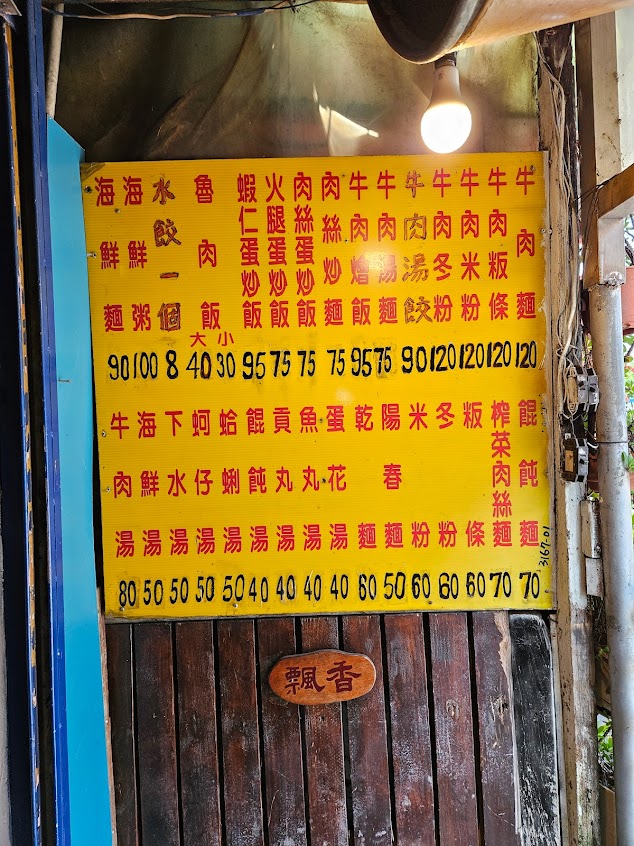 牛肉麵 120
牛肉粄條 120
牛肉米粉 120
牛肉冬粉 120
牛肉湯餃 90
牛肉湯麵 75
牛肉燴飯 95
肉絲炒麵 75
肉絲蛋炒飯 75
火腿蛋炒飯 75
蝦仁蛋炒飯 95
魯肉飯 大 40 小 30
水餃一個 8
海鮮粥 100
海鮮麵 90
餛飩麵 70
榨菜肉絲麵 70
粄條 60
冬粉 60
米粉 60
陽春麵 50
乾麵 60
蛋花湯 40
魚丸湯 40
貢丸湯 40
餛飩湯 40
蛤蜊湯 50
蚵仔湯 50
下水湯 50
海鮮湯 50
牛肉湯 80
3167-01
飄香